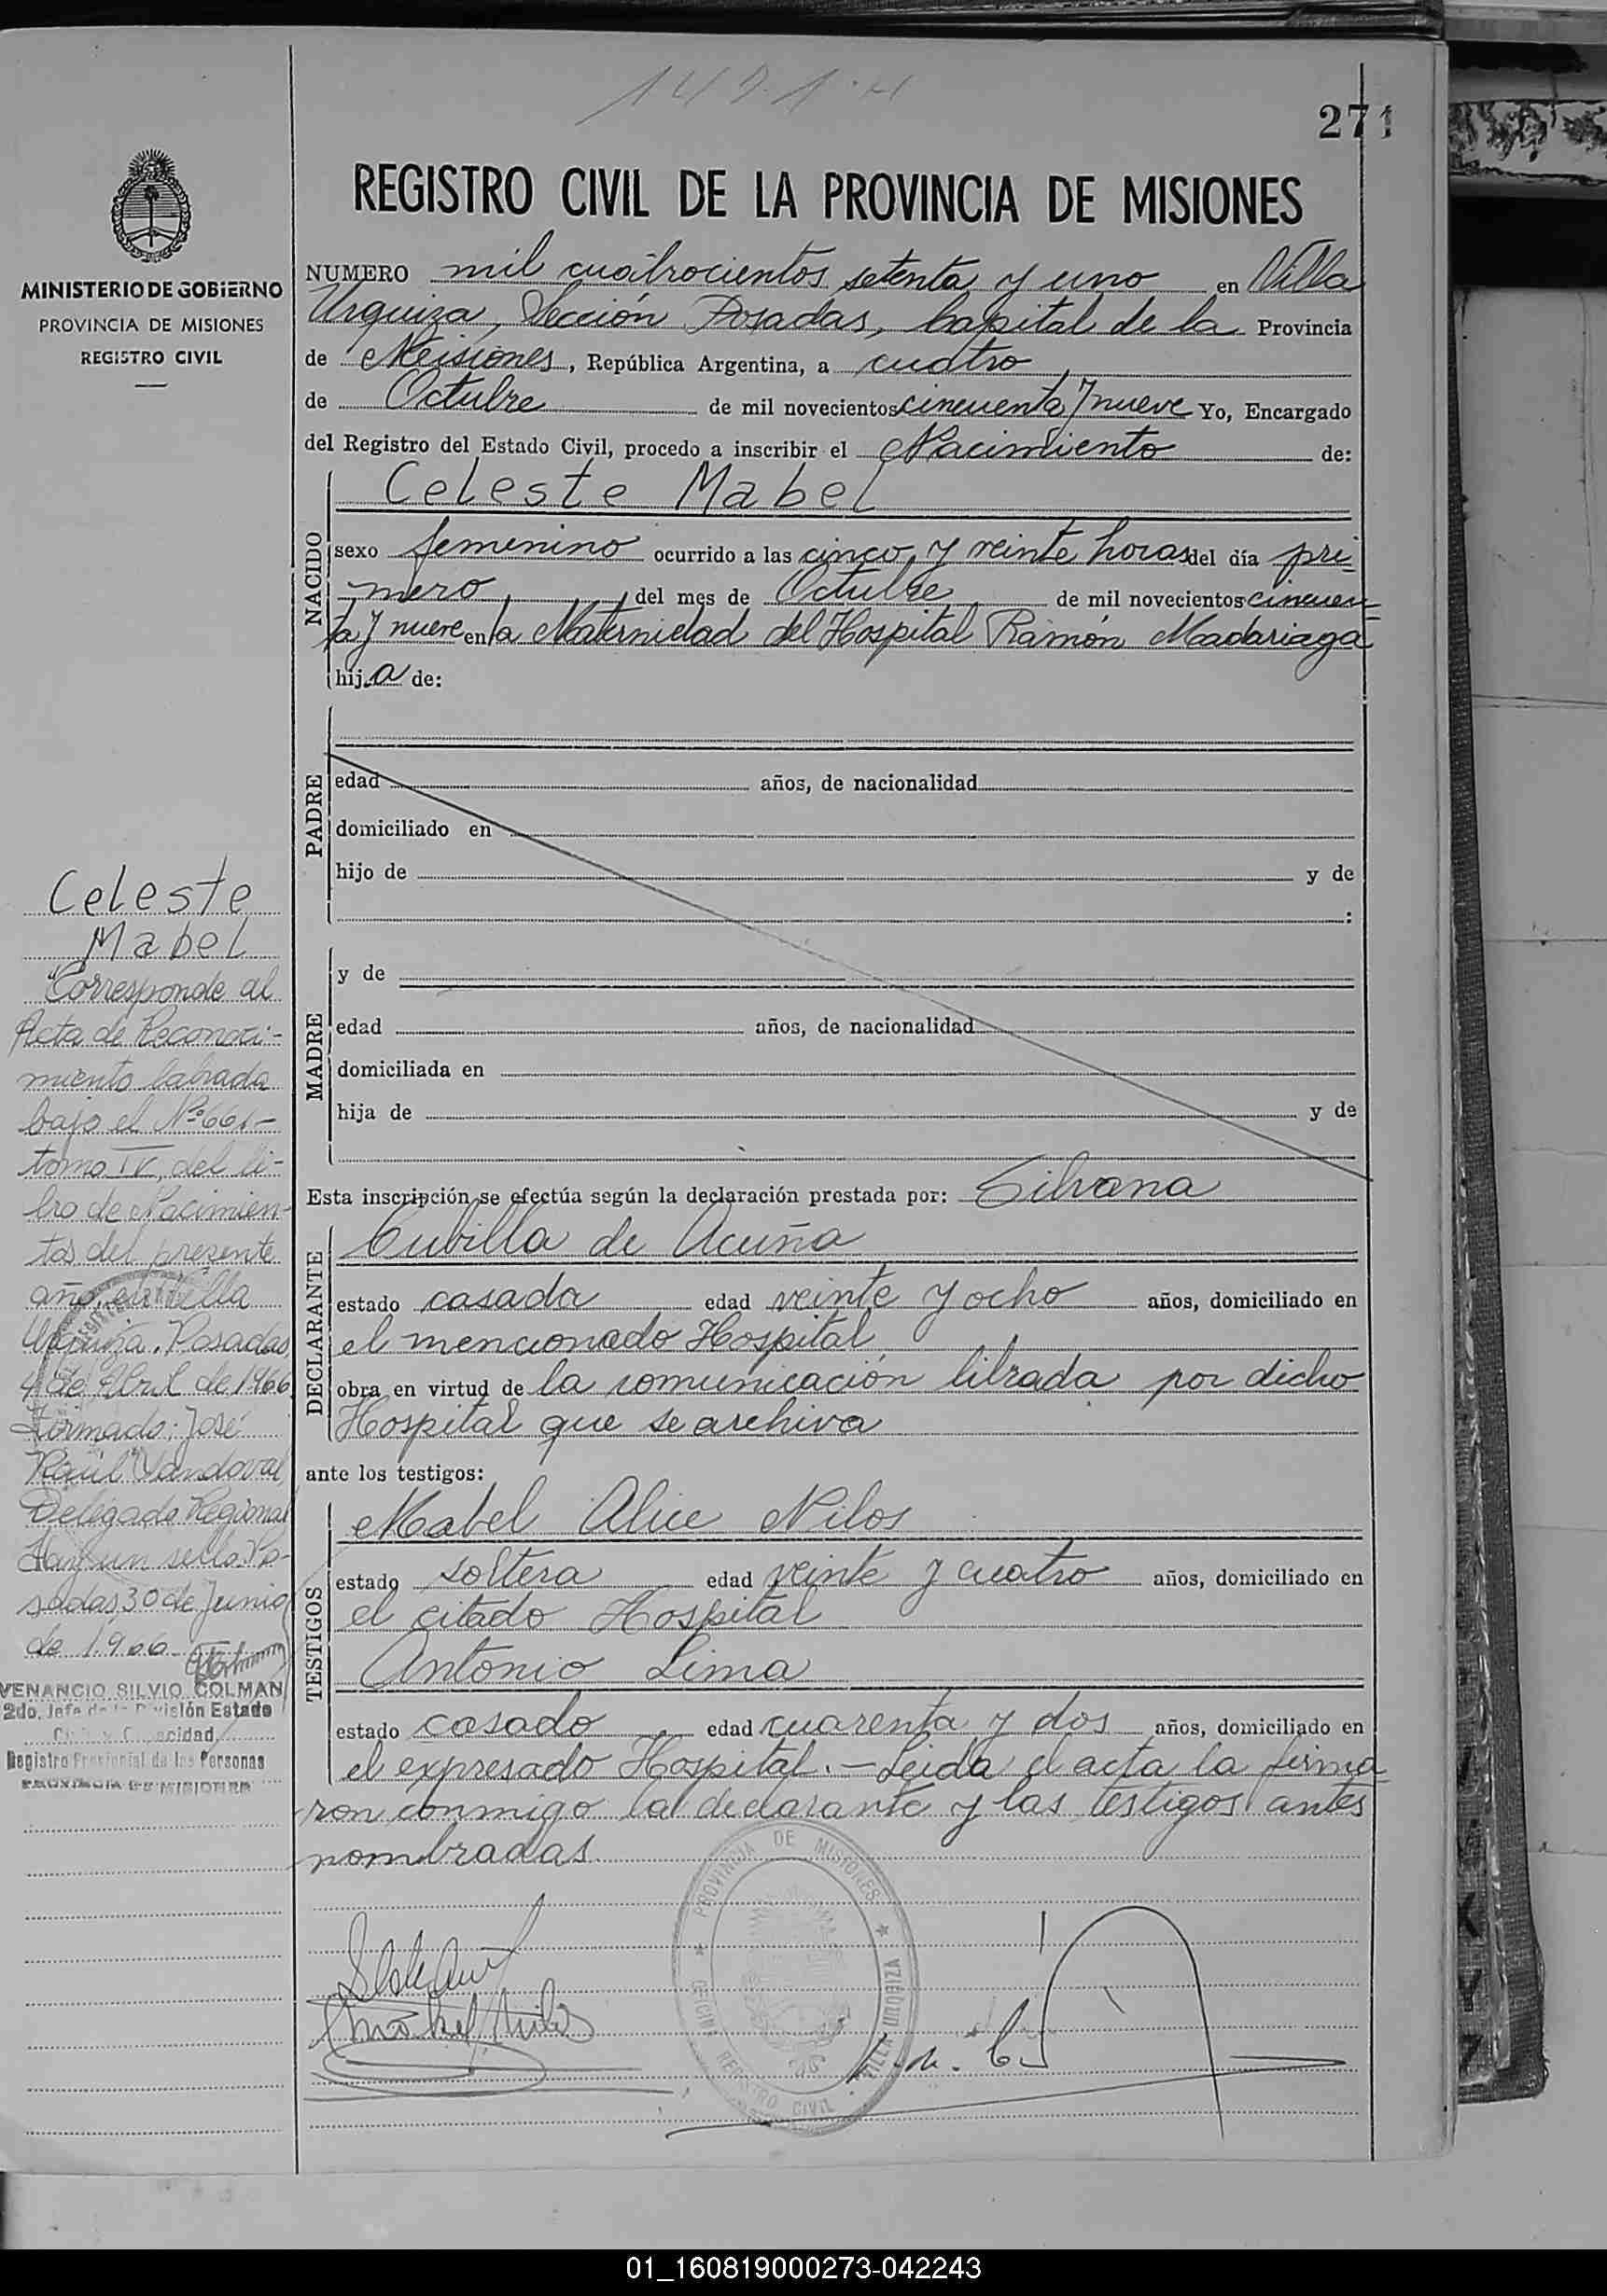 271
MINISTERIO DE GOBIERNO
PROVINCIA DE MISIONES
REGISTRO CIVIL
REGISTRO CIVIL DE LA PROVINCIA DE MISIONES
NUMERO mil cuatrocientos setenta y uno en Villa
Urquiza, Sección Posadas, Capital de la Provincia
de Misiones, República Argentina, a cuatro
de Octubre de mil novecientos cincuenta y nueve Yo, Encargado
del Registro del Estado Civil, procedo a inscribir el Nacimiento de:
NACIDO
Celeste Mabel
sexo femenino ocurrido a las cinco y veinte horas del día pri=
mero, del mes de Octubre de mil novecientos cincuen=
ta y nueve en la Maternidad del Hospital Ramón Madariaga
hija de:
PADRE
edad años, de nacionalidad
domiciliado en
hijo de y de
:
MADRE
y de
edad años, de nacionalidad
domiciliada en
hija de y de
Esta inscripción se efectúa según la declaración prestada por: Silvana
DECLARANTE
Cubilla de Acuña
estado casada edad veinte y ocho años, domiciliado en
el mencionado Hospital
obra en virtud de la comunicación librada por dicho
Hospital que se archiva
ante los testigos:
TESTIGOS
Mabel Alice Nilos
estado soltera edad veinte y cuatro años, domiciliado en
el citado Hospital
Antonio Lima
estado casado edad cuarenta y dos años, domiciliado en
el expresado Hospital.- Leida el acta la firma
ron conmigo la declarante y los testigos antes
nombradas.
Celeste
Mabel
"Corresponde al
Acta de Reconoci-
miento labrada
bajo el Nº 661-
tomo IV, del li-
bro de Nacimien-
tos del presente
año, en Villa
Urquiza. Posadas
4 de Abril de 1966
Firmado: José
Raúl Sandoval
Delegado Regional
Hay un sello. Po-
sadas 30 de Junio
de 1966
VENANCIO SILVIO COLMAN
2do. Jefe de la División Estado
Civil y Capacidad
Registro Provincial de las Personas
PROVINCIA DE MISIONES
PROVINCIA DE MISIONES
VILLA URQUIZA
OFICINA REGISTRO CIVIL
01_160819000273-042243